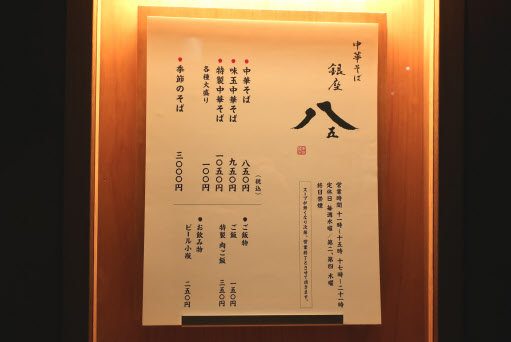 中華そば
銀座
八五
営業時間 十一時～十五時 十七時～二十一時
定休日 毎週水曜／第二、第四 木曜
終日禁煙
スープが無くなり次第、営業終了とさせて頂きます。
（税込）
中華そば 八五〇円
味玉中華そば 九五〇円
特製中華そば 一〇五〇円
各種大盛り 一〇〇円
季節のそば 三〇〇〇円
ご飯物
ご飯 一五〇円
特製 肉ご飯 三五〇円
お飲み物
ビール小瓶 二五〇円